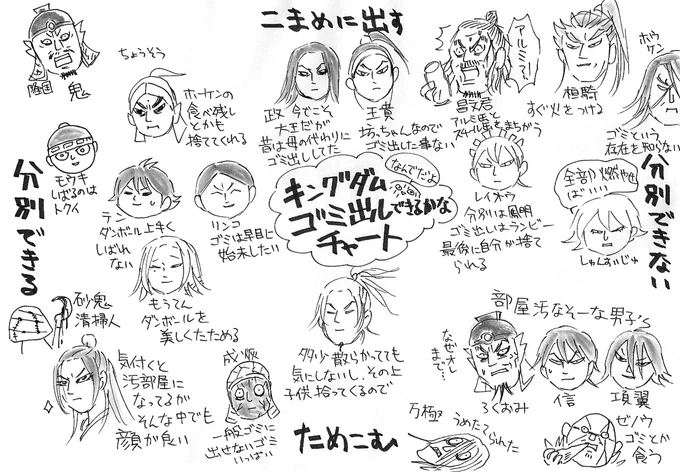 こまめに出す
隆国
鬼
ちょうそう
ホーケンの
食べ残し
とかも
捨ててくれる
政 今でこそ
大王だが
昔は母の代わりに
ゴミ出ししてた
王賁
坊っちゃんなので
ゴミ出した事ない
アルミ？
昌文君
アルミ馬と
スチール馬をまちがう
桓騎
すぐ火をつける
ホウ
ケン
ゴミという
存在を知らない
モウキ
しばるのは
トクイ
分別できる
テン
ダンボール上手く
しばれ
ない
リンコ
ゴミは早目に
始末したい
なんでだよ
キングダム
ゴミ出しできるかな
チャート
レイオウ
分別は鳳明
ゴミ出しはランビー
最後に自分が捨て
られる
全部燃やせ
ばいい
しゃんすいじゅ
分別できない
もうてん
ダンボールを
美しくたためる
砂鬼
清掃人
気付くと
汚部屋に
なってるが
そんな中でも
顔が良い
成蟜
一般ゴミに
出せないゴミ
いっぱい
多少散らかってても
気にしないし、その上
子供拾ってくるので
ためこむ
部屋汚なそーな男子's
なぜオレ
まで…
ろくおみ
信
項翼
万極
うめたてられた
ゼノウ
ゴミとか
食う